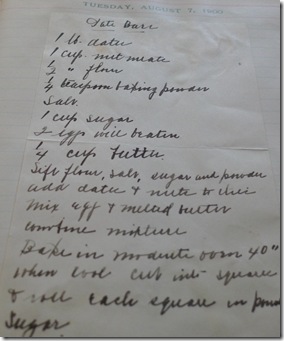 TUESDAY, AUGUST 7, 1900
Date Bars
1 lb. dates
1 cup nut meats
1/2 " flour
1/4 teaspoon baking powder
Salt.
1 cup sugar
2 eggs well beaten
1/4 cup butter.
Sift flour, salt, sugar and powder
add dates & nuts to this
Mix egg & melted butter
combine mixture
Bake in moderate oven 40"
when cool cut into square
& roll each square in
Sugar